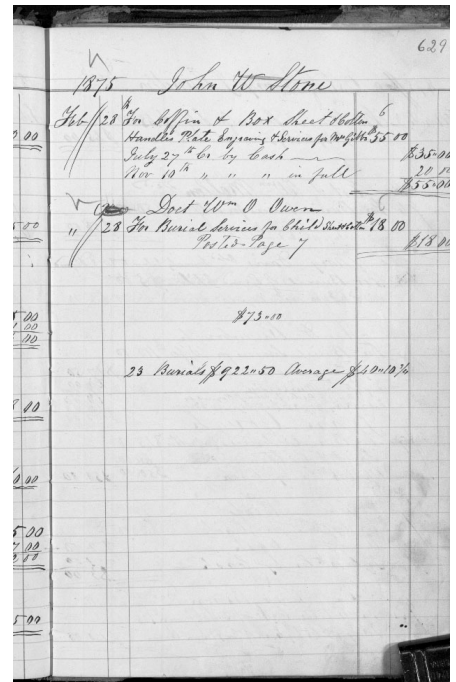 629
1875 John W Stone
Feb 28th For Coffin & Box Sheet & Cotton 6
Handles Plate Engraving & Services for Mrs $55 00
July 27th Cr by Cash $35 " 00
Nov 10th " " " in full 20 00
$55 " 00
Doct Wm O Owen 6
" 28 For Burial Services for Child Sheet & Cotton $18 00
Posted - Page 7 $18 00
$73 " 00
23 Burials $922 " 50 Average $40 " 10
3 00
5 00
5 00
1 00
5 00
8 00
0 00
5 00
7 00
2 00
5 00